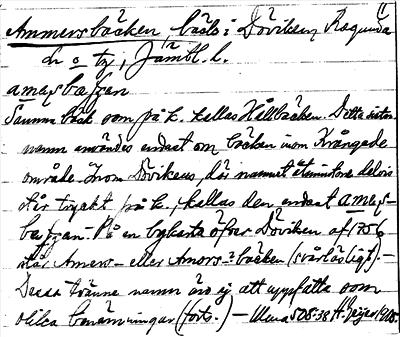 Ammersbäcken, bäck i Döviken, Ragunda
sn o tg, Jämtl. l.
amǝṣbɛ̨kǝn
Samma bäck som på k. kallas Hällbäcken. Detta sista
namn användes endast om bäcken inom Krångede
område. Inom Döviken, där namnet åtminstone delvis
står tryckt på k., kallas den endast amǝṣ-
På en bykarta öfver Döviken af 1756
står Amers- eller Amors-?bäcken (svårläsligt). –
Dessa tvänne namn äro ej att uppfatta som
olika benämningar (forts.) –